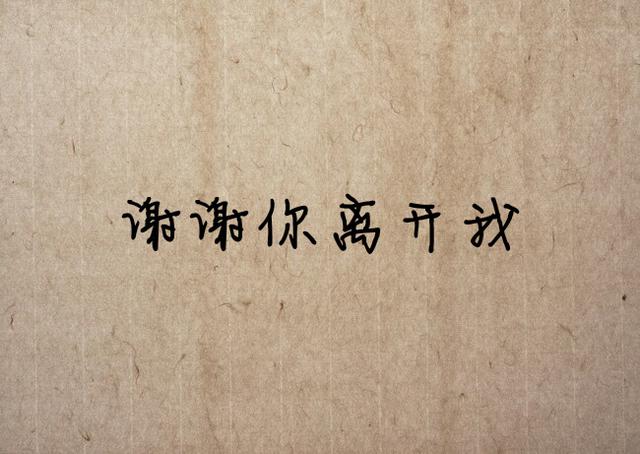 谢谢你离开我